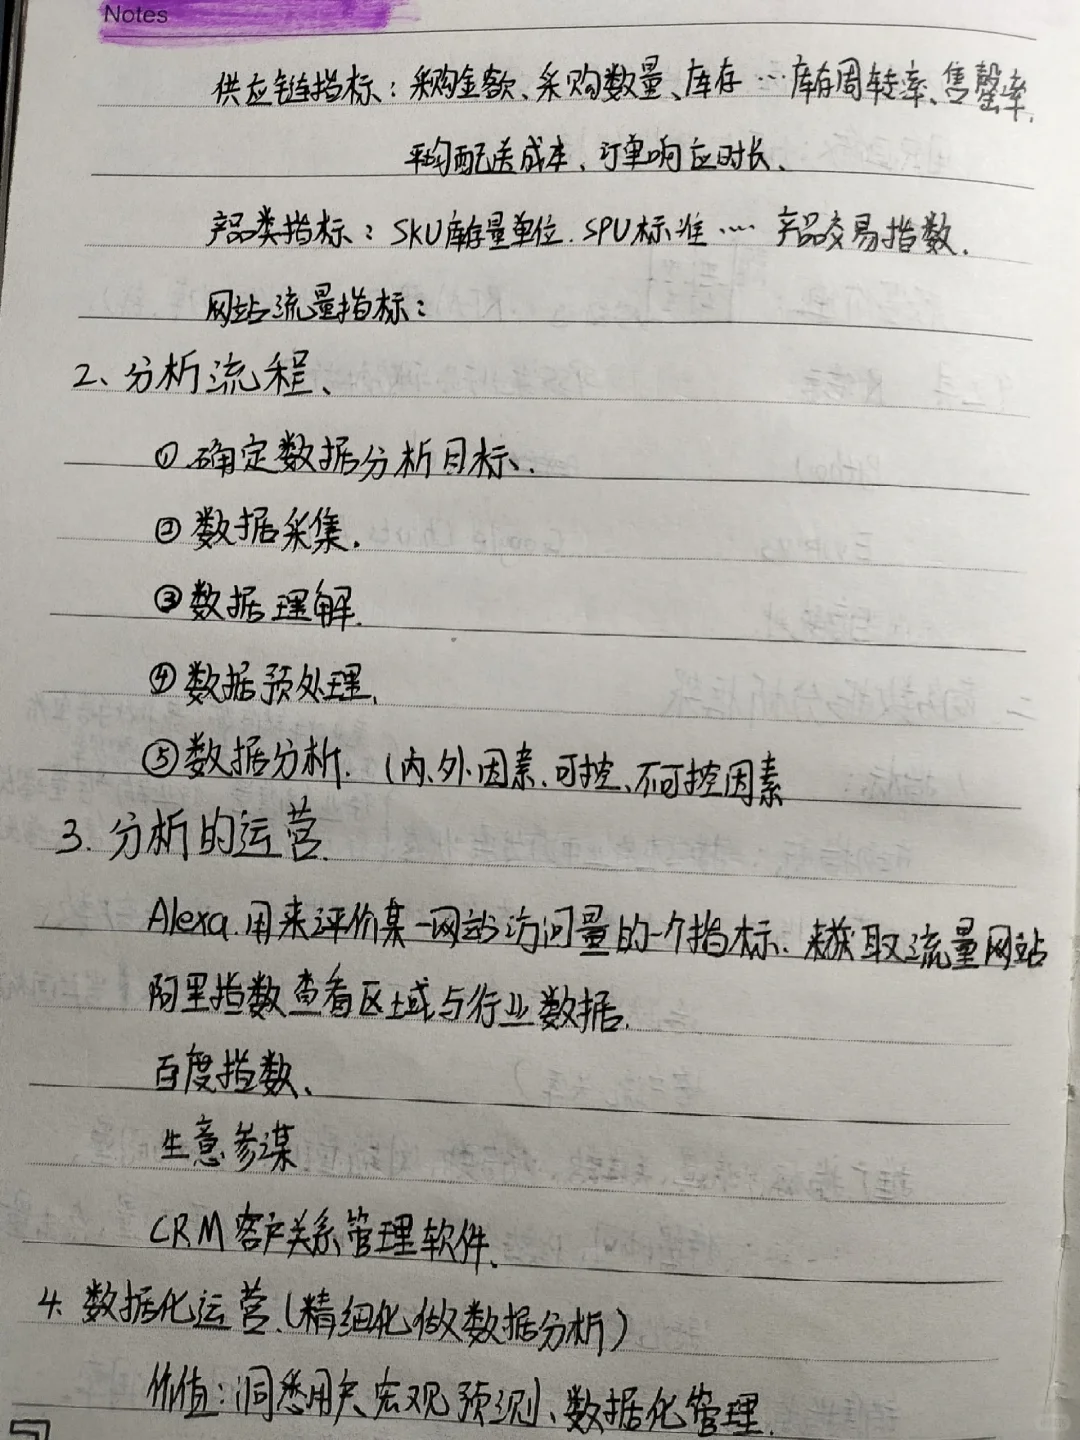 Notes
供应链指标：采购金额、采购数量、库存…库存周转率、售罄率.
平均配送成本、订单响应时长、
产品类指标：SKU库存量单位.SPU标准…产品交易指数.
网站流量指标：
2、分析流程、
①确定数据分析目标、.
②数据采集.
③数据理解.
④数据预处理.
⑤数据分析.（内、外因素、可控、不可控因素
3.分析的运营.
Alexa.用来评价某一网站访问量的一个指标、来获取流量网站
阿里指数查看区域与行业数据.
百度指数、
生意参谋
CRM客户关系管理软件、
4.数据化运营.（精细化做数据分析）
价值：洞悉用户宏观预测、数据化管理.